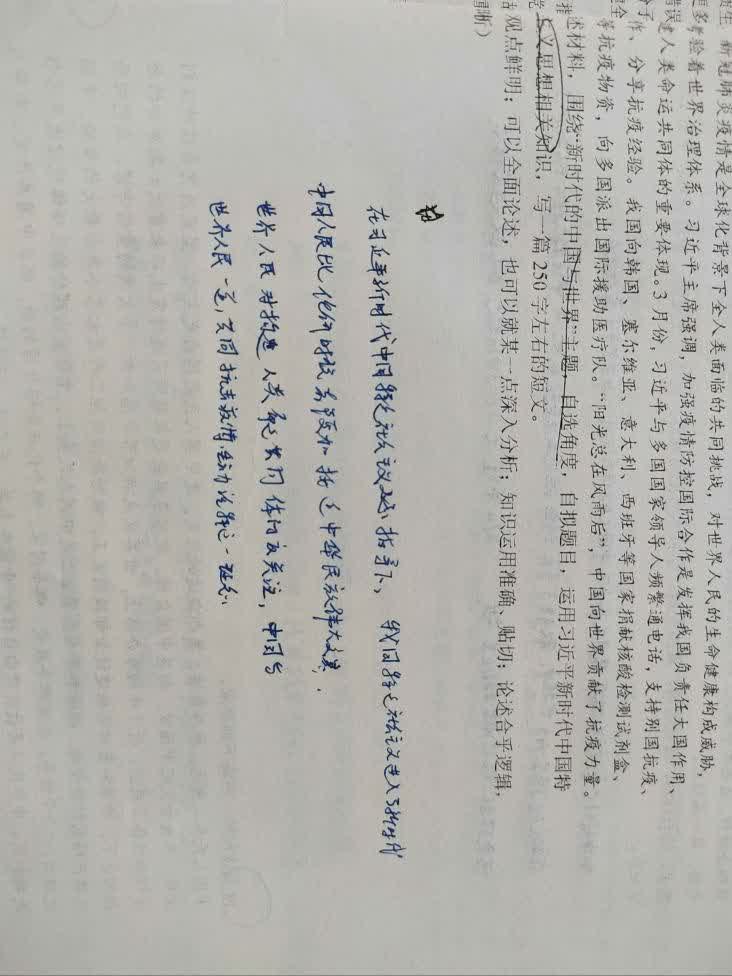 新冠肺炎疫情是全球化背景下全人类面临的共同挑战，对世界人民的生命健康构成威胁，
考验着世界治理体系。习近平主席强调，加强疫情防控国际合作是发挥我国负责任大国作用、
建人类命运共同体的重要体现。3月份，习近平与多国国家领导人频繁通电话，支持别国抗疫、
作、分享抗疫经验。我国向韩国、塞尔维亚、意大利、西班牙等国家捐献核酸检测试剂盒、
等抗疫物资，向多国派出国际援助医疗队。“阳光总在风雨后”，中国向世界贡献了抗疫力量。
述材料，围绕“新时代的中国与世界”主题，自选角度，自拟题目，运用习近平新时代中国特
义思想相关知识，写一篇250字左右的短文。
观点鲜明；可以全面论述，也可以就某一点深入分析；知识运用准确、贴切；论述合乎逻辑，
晰）
在习近平新时代中国特色社会主义思想指导下，我国特色社会主义进入了新时代
中国人民比任何时候都更加接近中华民族伟大复兴，
世界人民对构造人类命运共同体的关注，中国与
世界人民一道，共同抗击疫情